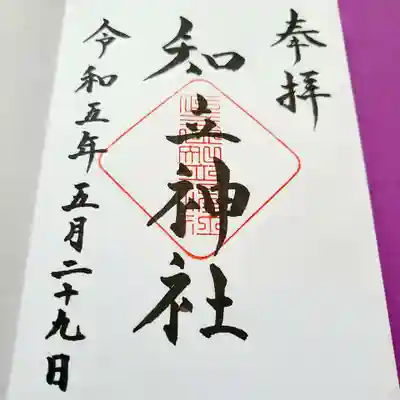 奉拝
知立神社
令和五年五月二十九日